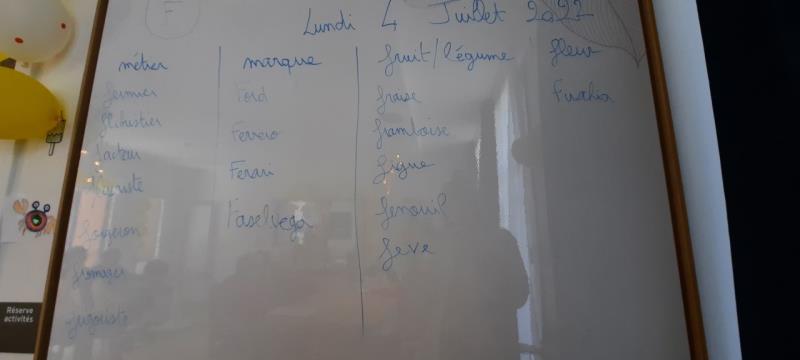 F
Lundi 4 Juillet 2022
métier marque fruit/légume fleur
fermier Ford fraise Fushia
flibustier Ferrero framboise
facteur Ferari figue
forgeron fenouil
fromager feve
Réserve
activités